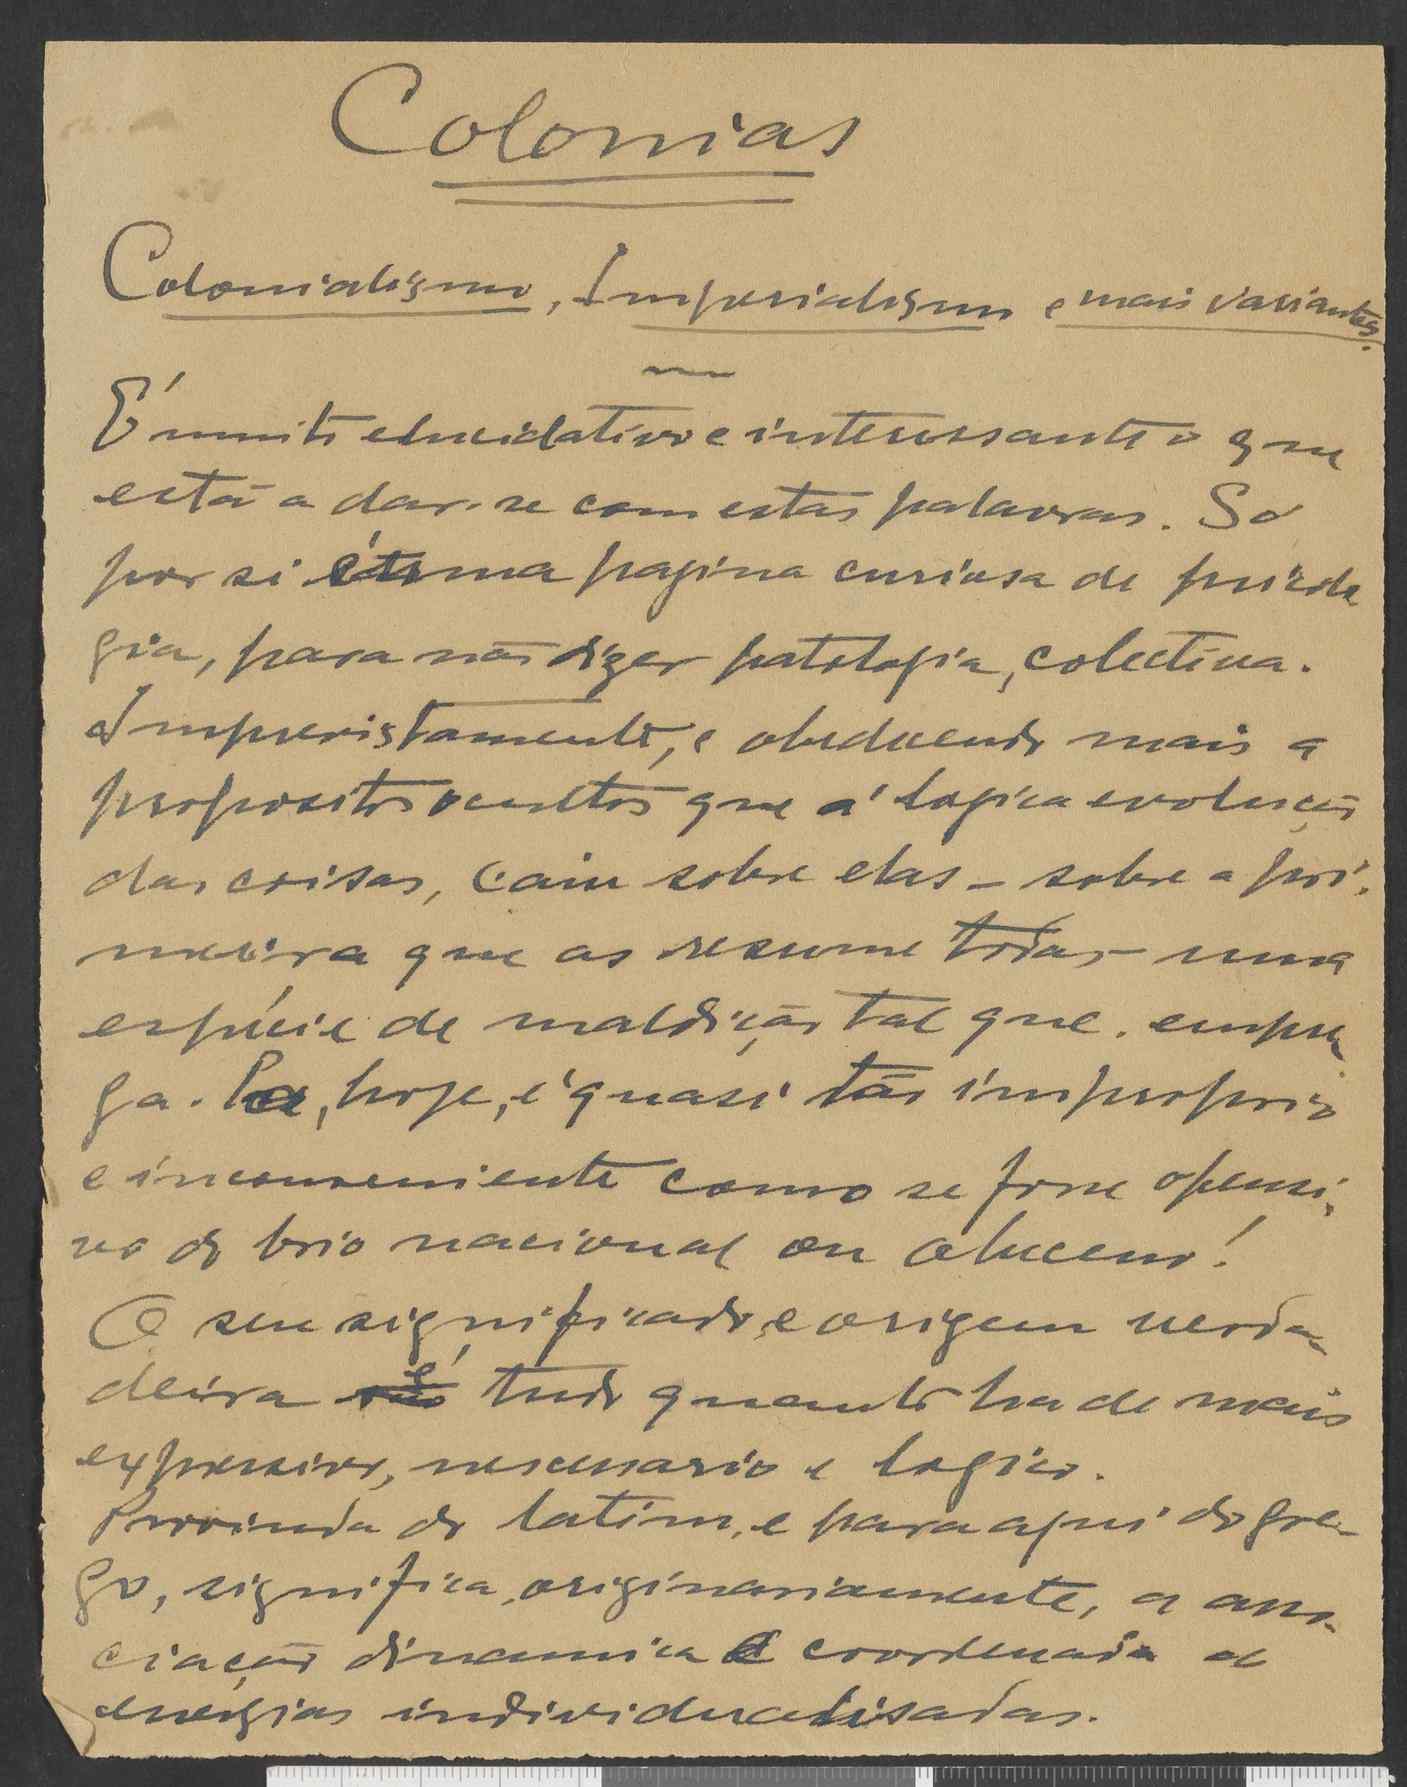 Colonias
Colonialismo, Imperialismo e mais variantes.
É muito elucidativo e interessante o que
está a dar-se com estas palavras. Só
por si é uma pagina curiosa de psicolo
gia, para não dizer patologia, colectiva.
Imprevistamente, e obedecendo mais a
propositos ocultos que á logica evolução
das coisas, caiu sobre elas – sobre a pri-
meira que as resume todas – uma
espécie de maldição tal que. empre-
ga-la, hoje, é quasi tão improprio
e inconveniente como se fosse ofensi-
vo do brio nacional ou obsceno!
O seu significado e origem verda-
deira é tudo quanto ha de mais
expressivo, nescessario e logico.
Provinda do latim, e para aqui do gre-
go, significa, originariamente, a asso-
ciação dinamica e coordenada de
energias individualisadas.